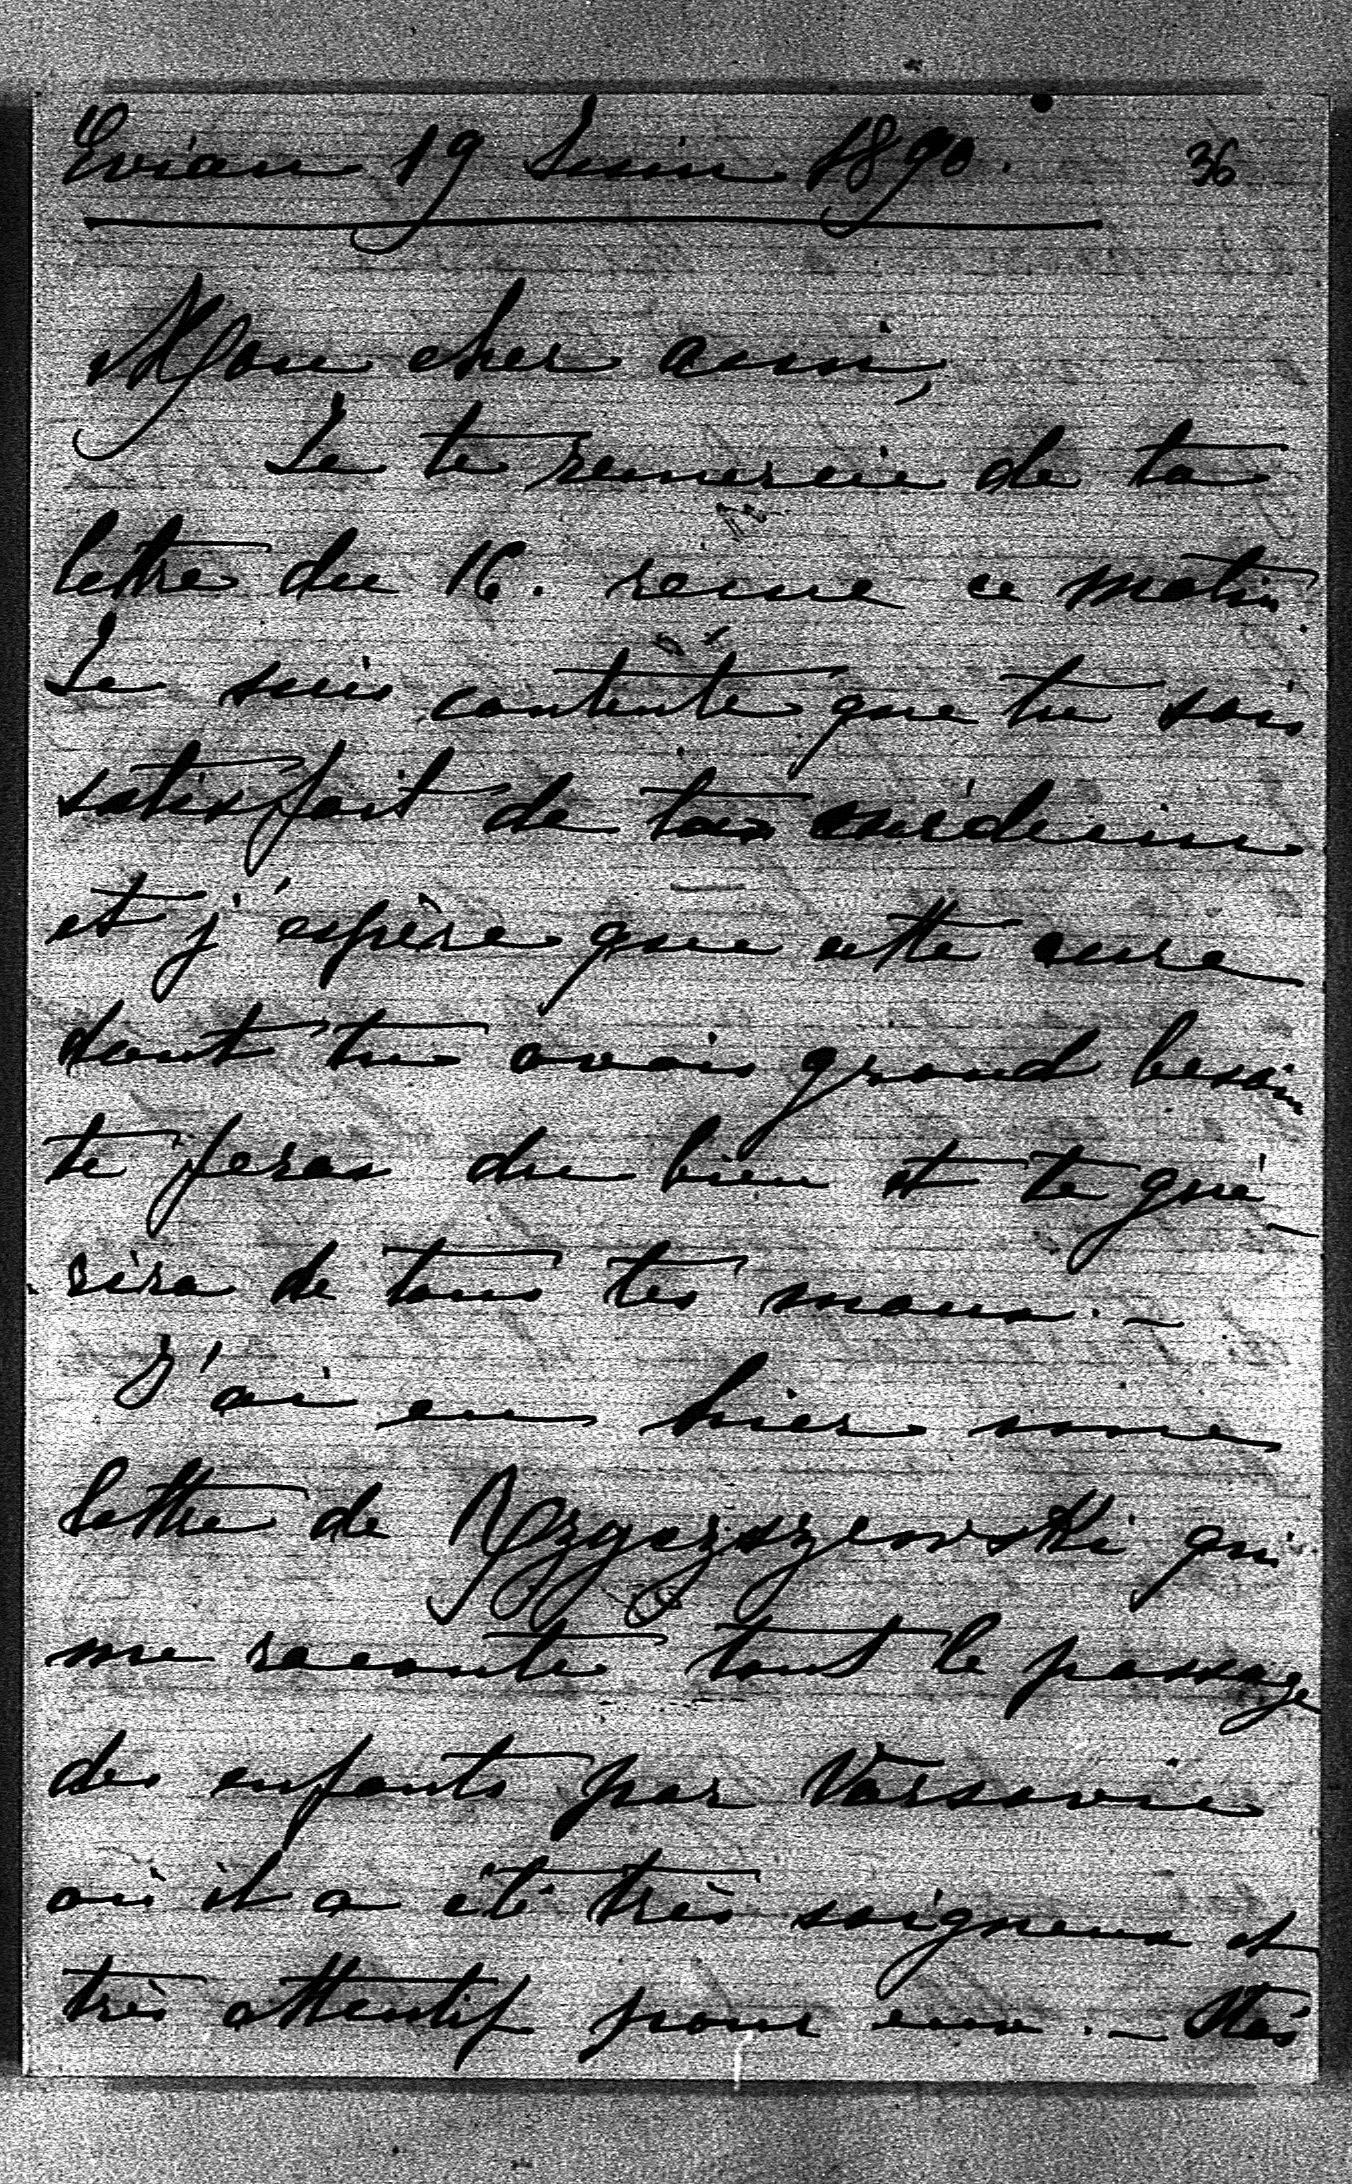 Evian 19 Juin 1890. 36
Mon cher ami,
Je te remercie de ta
lettre du 16. recue ce matin
Je suis contente que tu sois
satisfait de ton médecin
et j'espère que cette cure
dont tu avais grand besoin
te feras du bien et te gué-
rira de tous tes maux. –
J'ai eu hier une
lettre de qui
me raconte tout le passage
des enfants par Varsovie
où il a été très soigneux et
très attentif pour eux. – Stas